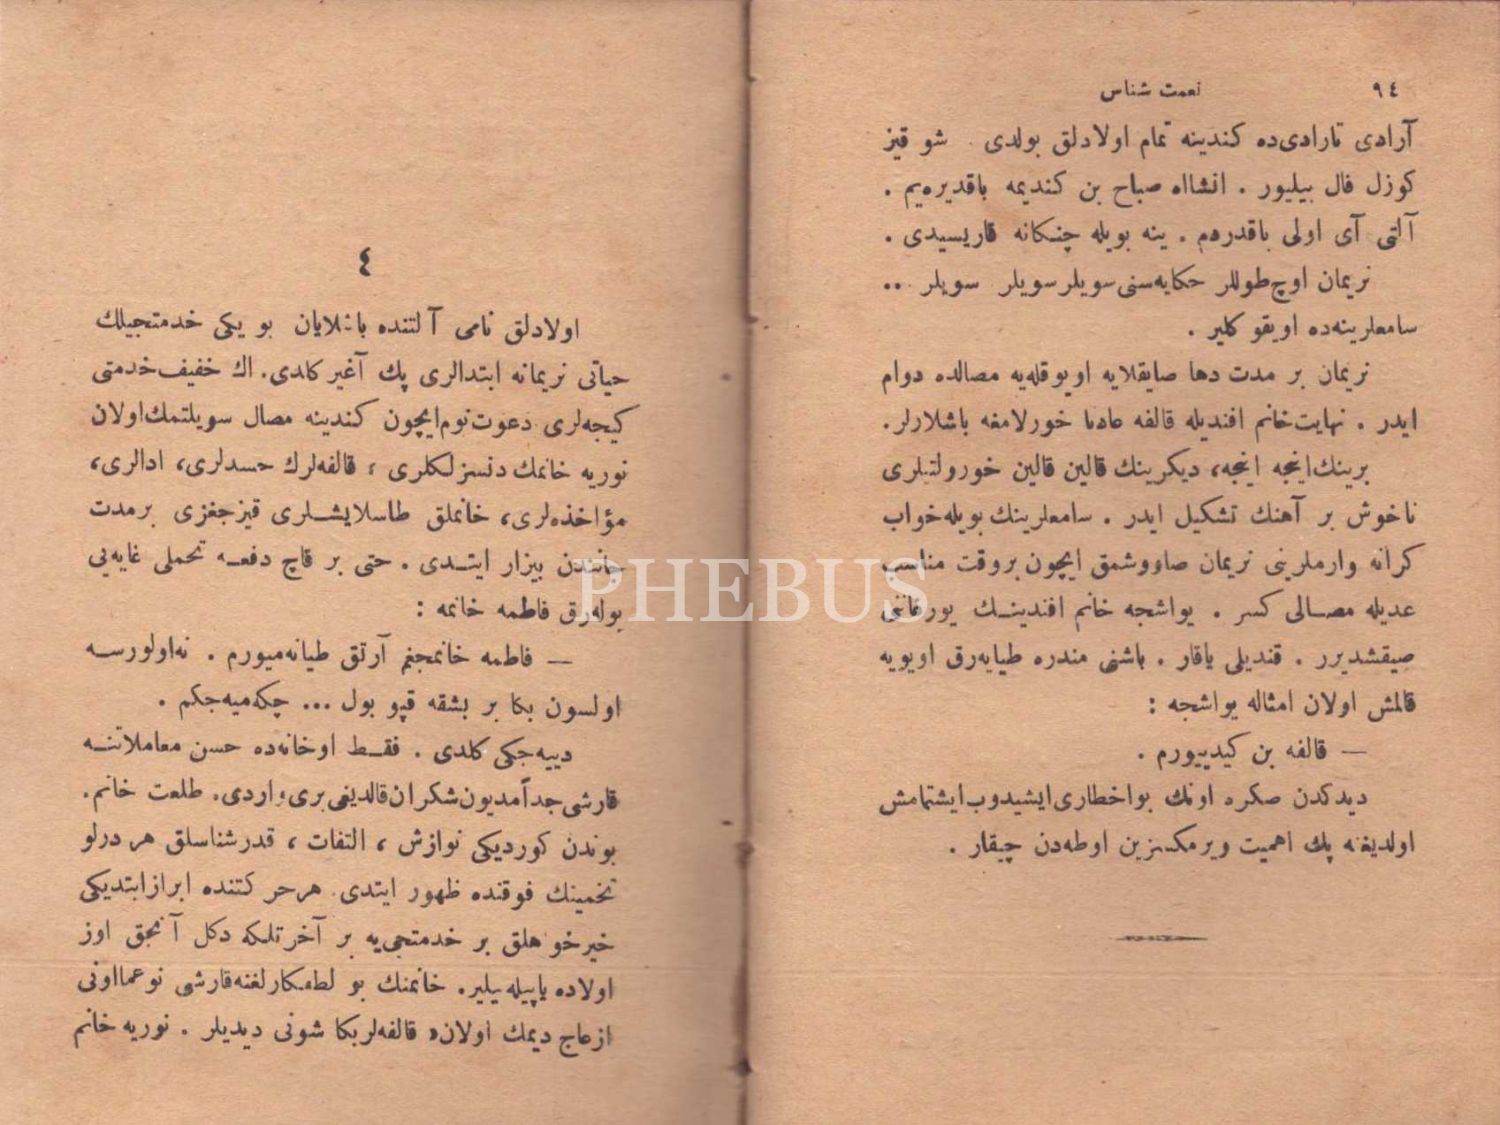 ٩٤
نعمت شناس
آرادی تارادی‌ده کندینه تمام اولادلق بولدی . شو قیز
کوزل فال بیلیور . انشااه صباح بن کندیمه باقدیره‌یم .
آلتی آی اولی باقدردم . ینه بویله چنکانه قاریسیدی .
نریمان اوچ طوللر حکایه‌سنی سویلر سویلر سویلر ..
سامعلرینه‌ده اویقو کلیر .
نریمان بر مدت دها صایقلایه اویوقله‌یه مصالده دوام
ایدر . نهایت خانم افندیله قالفه عادتا خورلامغه باشلارلر.
برینك اینجه اینجه، دیکرینك قالین قالین خورولتیلری
ناخوش بر آهنك تشکیل ایدر . سامعلرینك بویله خواب
کرانه وارملرینی نریمان صاووشمق ایچون بر وقت مناسب
عدیله مصالی کسر . یواشجه خانم افندینك یورغاننی
صیقشدیرر . قندیلی یاقار . باشنی مندره طیایه‌رق اویویه
قالمش اولان امثاله یواشجه :
— قالفه بن کیدییورم .
دیدکدن صکره اونك بو اخطاری ایشیدوب ایشتمامش
اولدیغنه پك اهمیت ویرمکسزین اوطه‌دن چیقار .
٤
اولادلق نامی آلتنده باشلایان بو یکی خدمتجیلك
حیاتی نریمانه ابتدالری پك آغیر کلدی. اك خفیف خدمتی
کیجه‌لری دعوت نوم ایچون کندینه مصال سویلتمك اولان
نوریه خانمك دنسزلکلری ، قالفه‌لرك حسدلری، ادالری،
مؤاخذه‌لری، خانملق طاسلایشلری قیزجغزی بر مدت
جانندن بیزار ایتدی . حتی بر قاچ دفعه تحملی غایه‌یی
بوله‌رق فاطمه خانمه :
— فاطمه خانمجغم آرتق طیانه‌میورم . نه اولورسه
اولسون بکا بر بشقه قپو بول ... چکه‌میه‌جکم .
دییه‌جکی کلدی . فقط او خانه‌ده حسن معاملاتنه
قارشی جداً مدیون شکران قالدیغی بری واردی. طلعت خانم.
بوندن کوردیکی نوازش ، التفات ، قدرشناسلق هر درلو
تخمینك فوقنده ظهور ایتدی. هر حرکتنده ابراز ایتدیکی
خیرخواهلق بر خدمتجی‌یه بر آخرتلکه دکل آنجق اوز
اولاده یاپیله‌بیلیر. خانمنك بو لطفکارلغنه قارشی نوعما اونی
ازعاج دیمك اولان « قالفه‌لر بکا شونی دیدیلر . نوریه خانم
PHEBUS